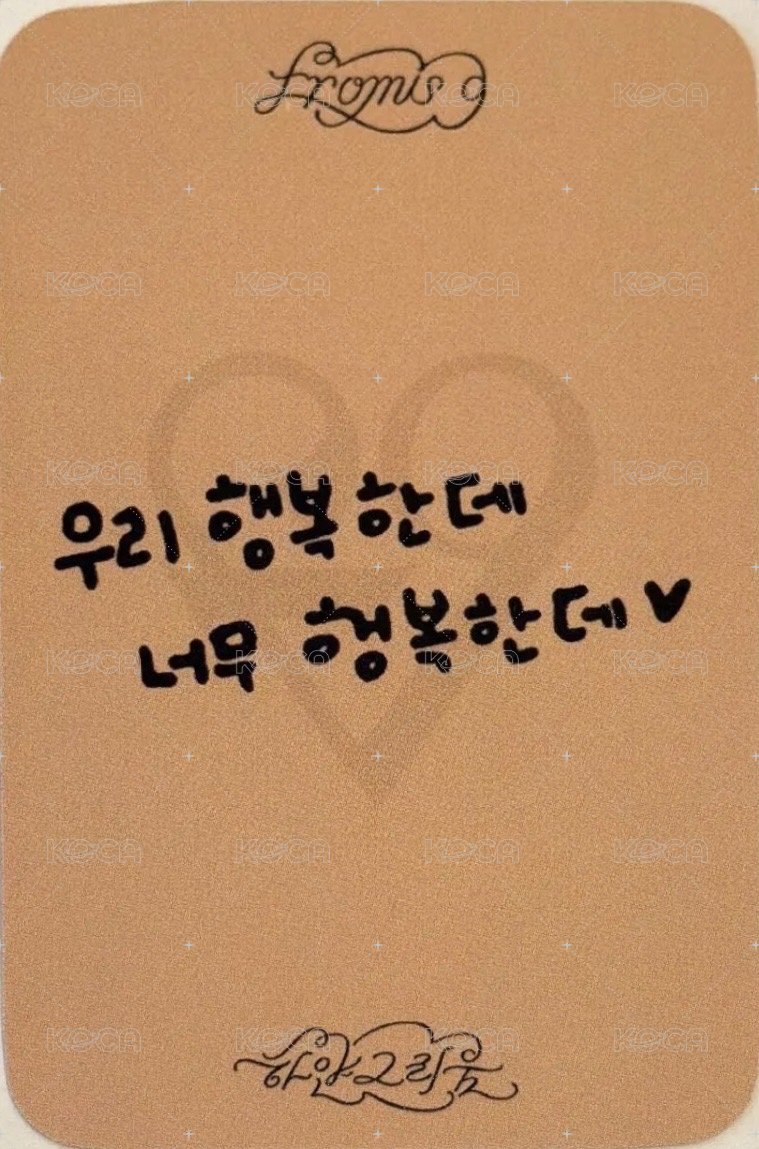 fromis 9
우리 행복한데
너무 행복한데♥
하얀그리움
KOCA